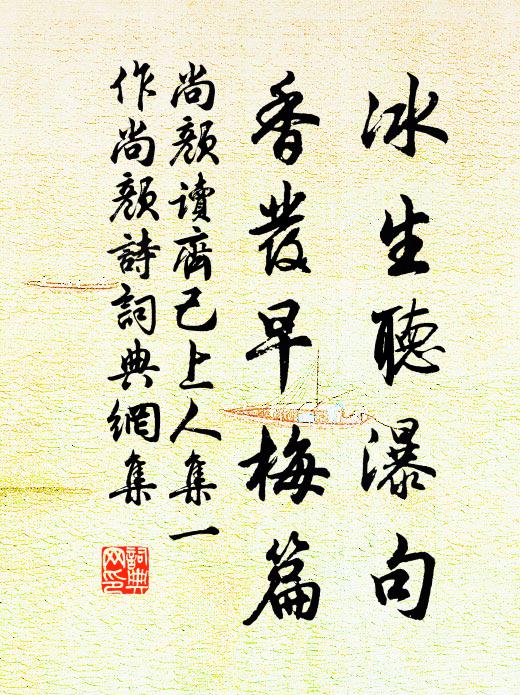 冰生聽瀑句
香發早梅篇
尚顏讀齊己上人集一
作尚顏詩詞典網集
詞典
网印